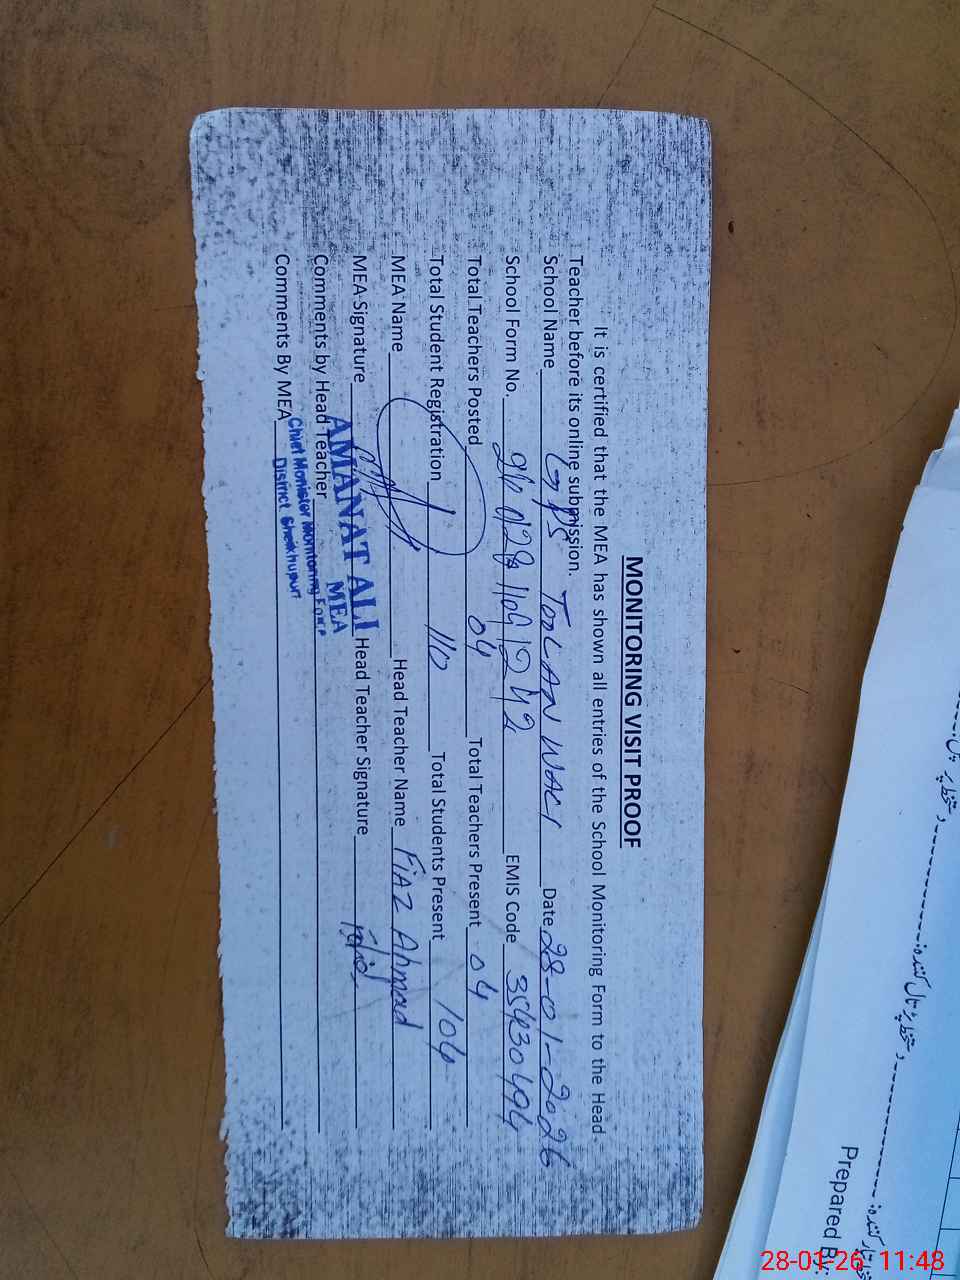 MONITORING VISIT PROOF
It is certified that the MEA has shown all entries of the School Monitoring Form to the Head
Teacher before its online submission.
School Name GPS TOOLAN WALI Date 28-01-2026
School Form No. EMIS Code 35430494
Total Teachers Posted 04 Total Teachers Present 04
Total Student Registration 110 Total Students Present 104
MEA Name Head Teacher Name Fiaz Ahmad
MEA Signature Head Teacher Signature
Comments by Head Teacher
Comments By MEA
AMANAT ALI
MEA
Chief Minister Monitoring Force
District Sheikhupura
Prepared By:
28-01-26 11:48